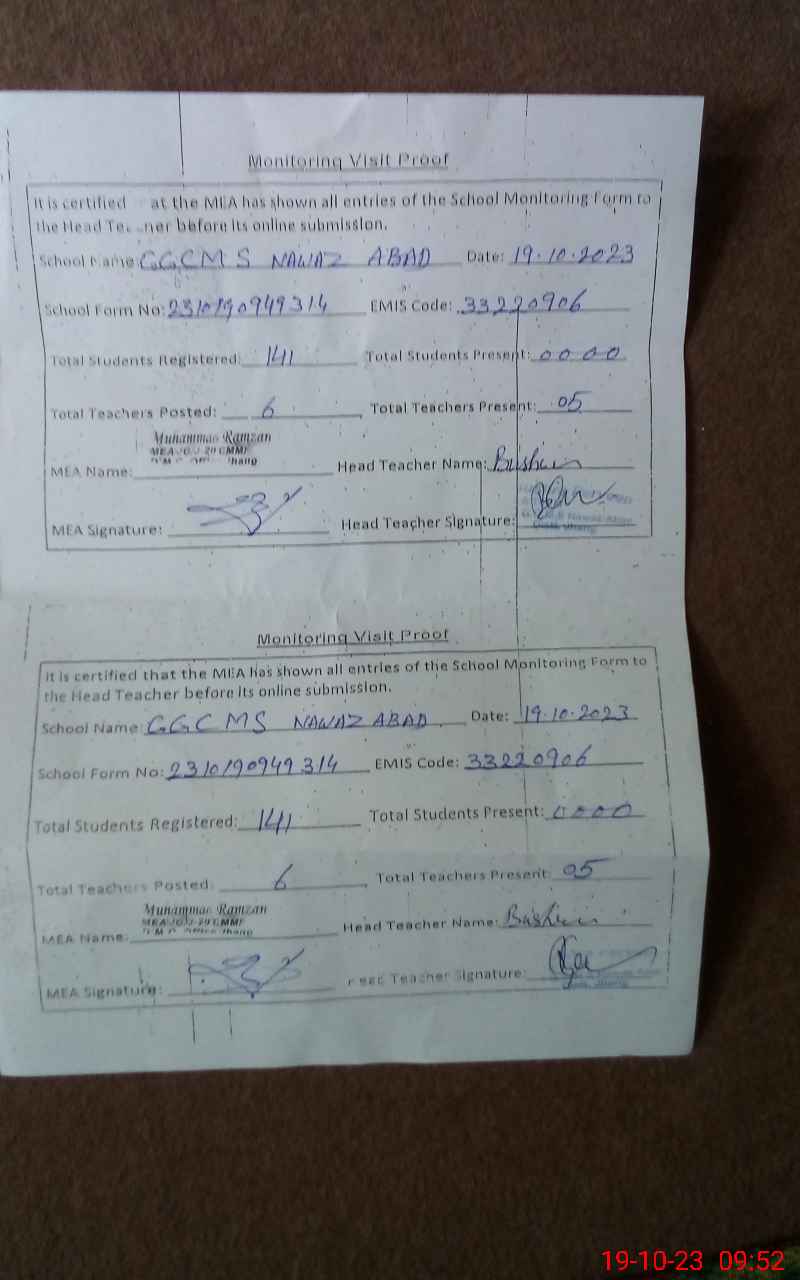 Monitoring Visit Proof
It is certified at the MEA has shown all entries of the School Monitoring Form to
the Head Teacher before its online submission.
School Name GGCMS NAWAZ ABAD Date: 19.10.2023
School Form No: 2310190949314 EMIS Code: 33220906
Total Students Registered: 141 Total Students Present: 0000
Total Teachers Posted: 6 Total Teachers Present: 05
Muhammad Ramzan
MEA Name: Head Teacher Name:
MEA Signature: Head Teacher Signature:
Monitoring Visit Proof
It is certified that the MEA has shown all entries of the School Monitoring Form to
the Head Teacher before its online submission.
School Name GGCMS NAWAZ ABAD Date: 19.10.2023
School Form No: 2310190949314 EMIS Code: 33220906
Total Students Registered: 141 Total Students Present: 0000
Total Teachers Posted: 6 Total Teachers Present: 05
Muhammad Ramzan
MEA Name: Head Teacher Name:
MEA Signature: Teacher Signature:
19-10-23 09:52